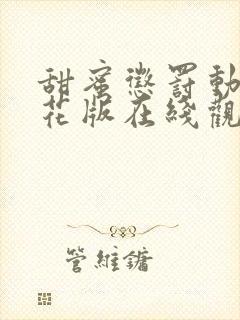 甜蜜懲罰動
花版在綫觀
管維鏞